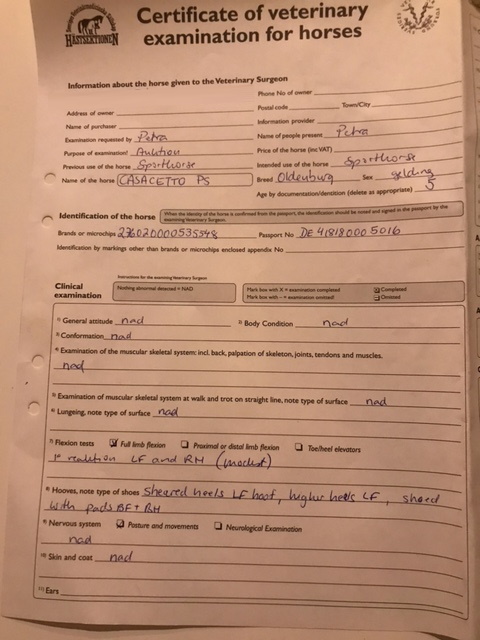 HÄSTSEKTIONEN
Certificate of veterinary
examination for horses
Information about the horse given to the Veterinary Surgeon
Phone No of owner
Address of owner
Postal code Town/City
Name of purchaser
Information provider
Examination requested by Petra
Name of people present Petra
Purpose of examination Auktion
Price of the horse (inc VAT)
Previous use of the horse Sporthorse
Intended use of the horse Sporthorse
Name of the horse CASACETTO PS
Breed Oldenburg Sex gelding
Age by documentation/dentition (delete as appropriate) 3
Identification of the horse
When the identity of the horse is confirmed from the passport, the identification should be noted and signed in the passport by the examining Veterinary Surgeon.
Brands or microchips 276020000535548 Passport No DE 418180005016
Identification by markings other than brands or microchips enclosed appendix No
Instructions for the examining Veterinary Surgeon
Clinical
examination
Nothing abnormal detected = NAD
Mark box with X = examination completed Completed
Mark box with – = examination omitted Omitted
1) General attitude nad
2) Body Condition nad
3) Conformation nad
4) Examination of the muscular skeletal system: incl. back, palpation of skeleton, joints, tendons and muscles.
nad
5) Examination of muscular skeletal system at walk and trot on straight line, note type of surface nad
6) Lungeing, note type of surface nad
7) Flexion tests Full limb flexion Proximal or distal limb flexion Toe/heel elevators
1° reaktion LF and RH (modest)
8) Hooves, note type of shoes Sheared heels LF hoof, higher heels LF, shoed
with pads BF + RH
9) Nervous system Posture and movements Neurological Examination
nad
10) Skin and coat nad
11) Ears